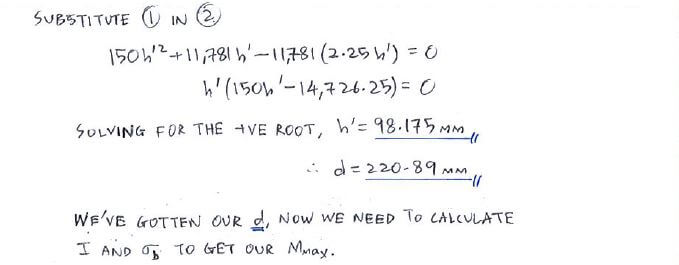 SUBSTITUTE ① IN ②
150h'² + 11,781h' - 11,781(2.25h') = 0
h'(150h' - 14,726.25) = 0
SOLVING FOR THE +VE ROOT, h' = 98.175 MM
∴ d = 220.89 MM
WE'VE GOTTEN OUR d, NOW WE NEED TO CALCULATE
I AND σb TO GET OUR Mmax.